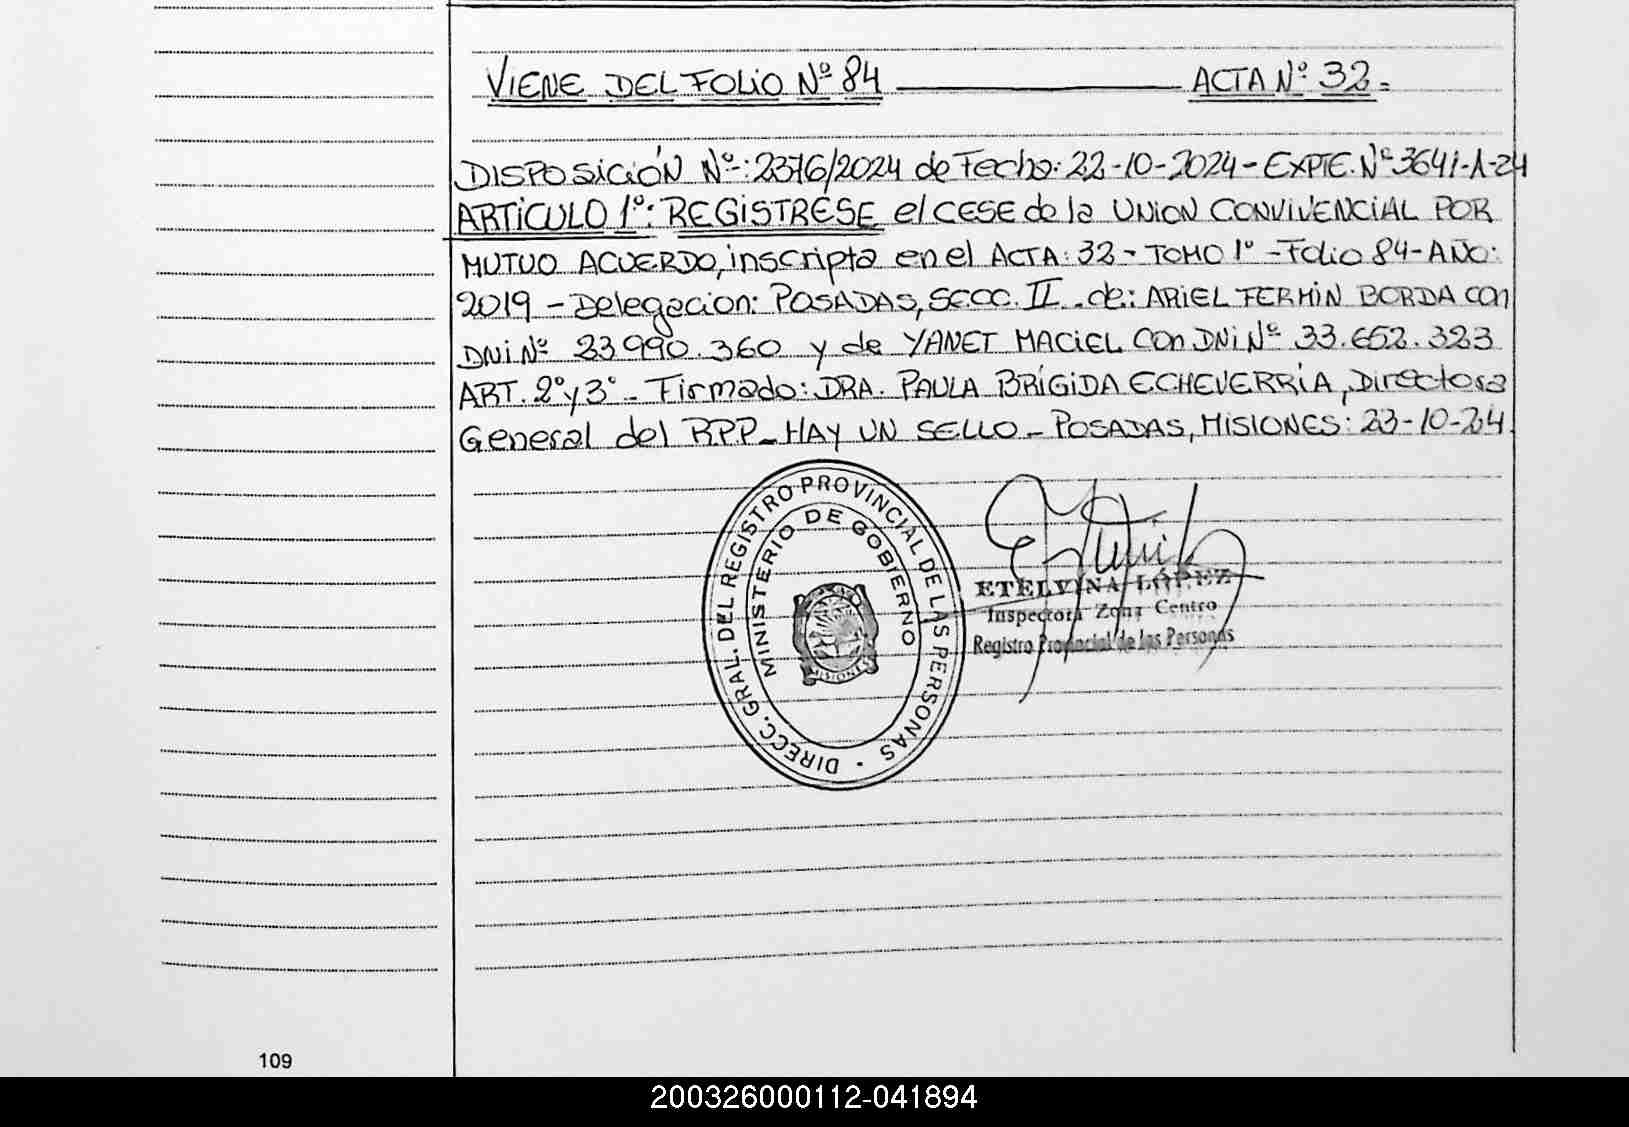 VIENE DEL FOLIO Nº 84 ACTA Nº 32.=
DISPOSICIÓN Nº: 2376/2024 de Fecha: 22-10-2024 - EXPTE. Nº 3641-A-24
ARTICULO 1º: REGISTRESE el CESE de la UNION CONVIVENCIAL POR
MUTUO ACUERDO, inscripta en el ACTA: 32 - TOMO 1º - Folio 84 - AÑO:
2019 - Delegacion: POSADAS, SECC. II - de: ARIEL FERMIN BORDA con
DNi Nº 23 990.360 y de YANET MACIEL Con DNi Nº 33.652.323
ART. 2º y 3º - Firmado: DRA. PAULA BRÍGIDA ECHEVERRÍA, Directora
General del R.P.P - HAY UN SELLO - POSADAS, MISIONES: 23-10-24.
DIRECC. GRAL. DEL REGISTRO PROVINCIAL DE LAS PERSONAS
MINISTERIO DE GOBIERNO
MISIONES
ETELVINA LÓPEZ
Inspectora Zona Centro
Registro Provincial de las Personas
109
200326000112-041894